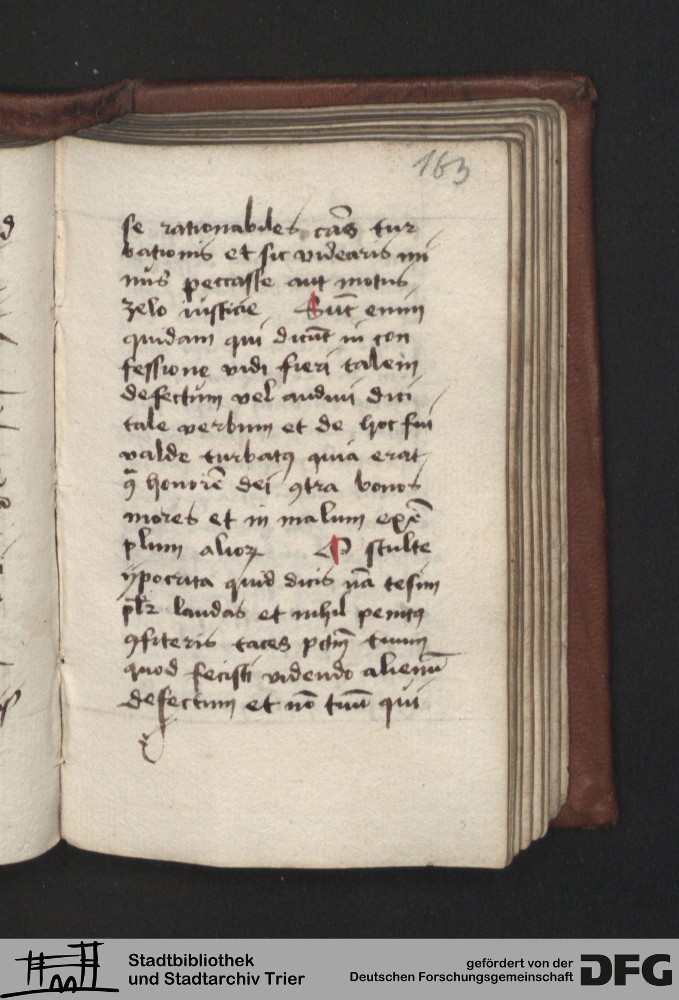 163
se rationabiles cās tur
bationis et sic videaris mi
nus peccasse aut motus
zelo iusticie Sūt enim
quidam qui dicūt in con
fessione vidi fieri talem
defectum vel audiui dici
tale verbum et de hoc fui
valde turbatꝯ quia erat
ꝯ̄ honorē dei ꝯtra bonos
mores et in malum exē
plum alioꝝ O stulte
ypocrita quid dicis
laudas et nihil penitꝯ
ꝯfiteris taces pctm̄ tuum
quod fecisti videndo alienū
defectum et nō tuū qui
Stadtbibliothek
und Stadtarchiv Trier
gefördert von der
Deutschen Forschungsgemeinschaft
DFG